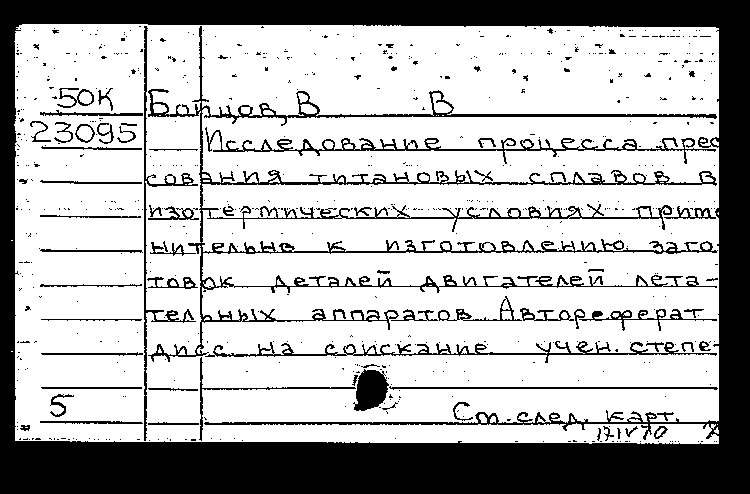 50К Бойцов, В В
23095 Исследование процесса прес
сования титановых сплавов в
изотермических условиях приме
нительно к изготовлению заго
товок деталей двигателей лета-
тельных аппаратов Автореферат
дисс. на соискание учен. степе-
5
См. след. карт.